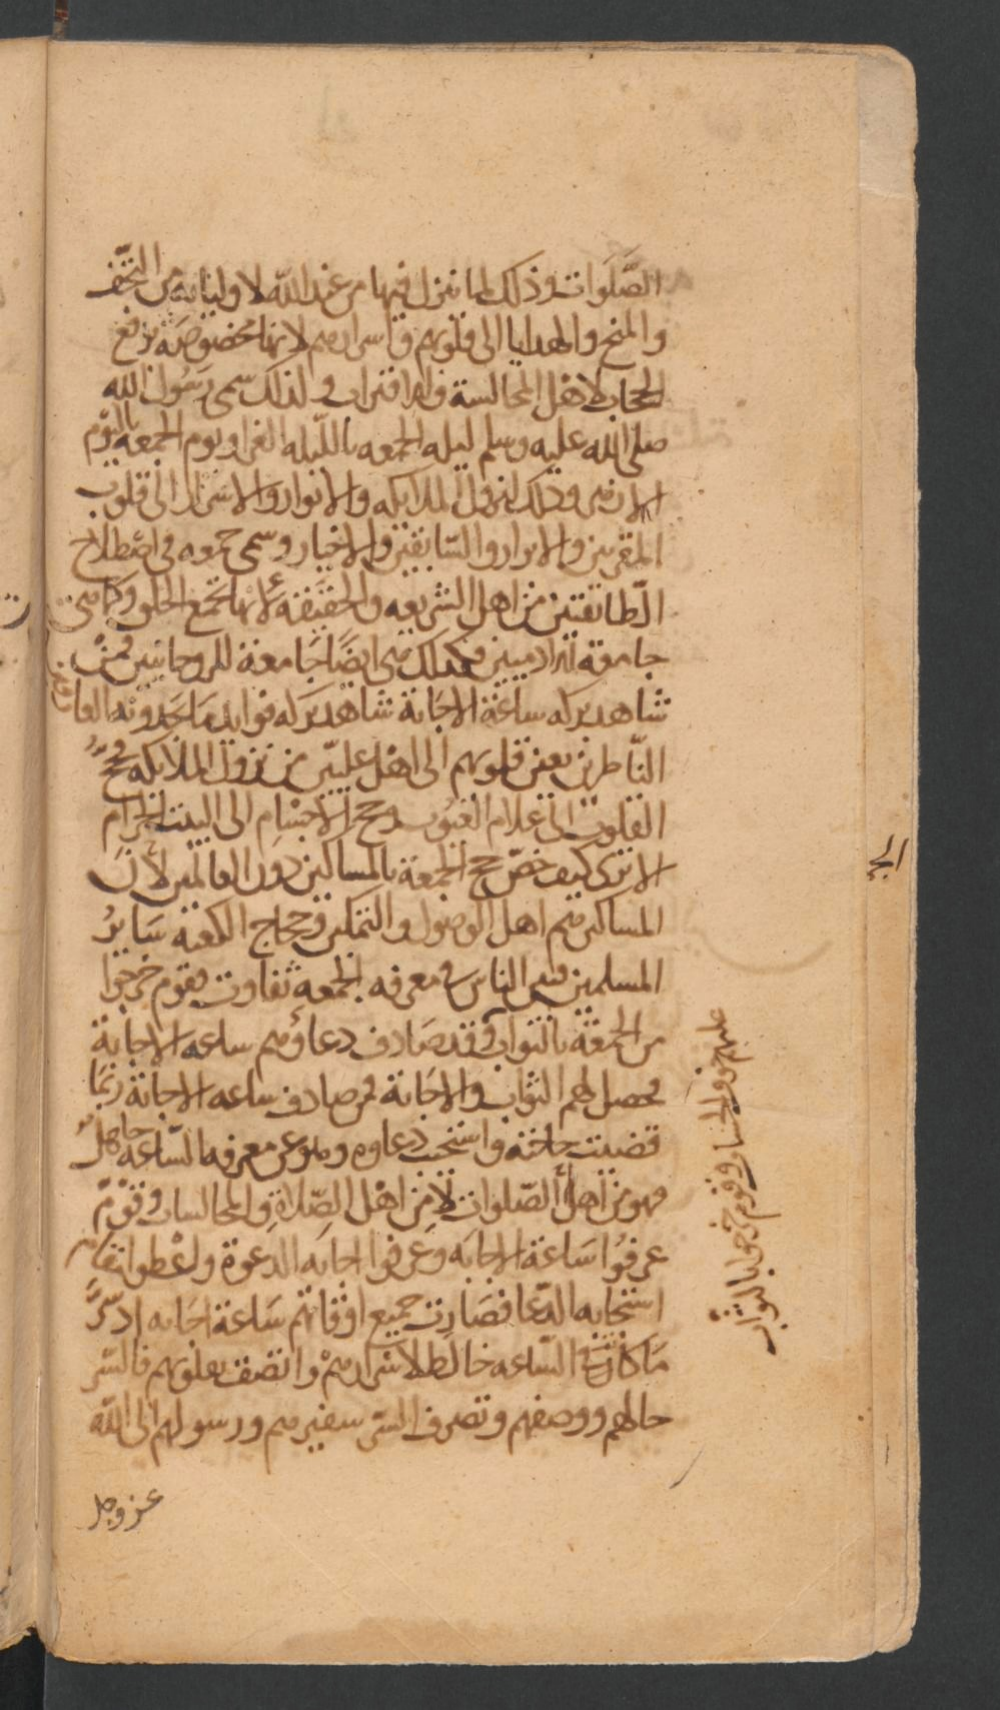 الصَّلَوات وذلك لما ينزل فيها من عند الله لاوليائه من التُّحَف
والمنح والهدايا الى قلوبهم واسرارهم لانها مخصوصة برفع
الحجاب لاهل المجالسة والاقتراب ولذلك سمى رسُول الله
صلى الله عليه وسلم ليله الجمعه بالليله الغرا ويوم الجمعة باليَوْم
الازهر وذلك لنزول الملايكه والانوار والاسرار الى قلوب
المقربين والابرار والسّابقين والاخيار وسمى جمعه في اصْطلاح
الطّائفتين من اهل الشريعه والحقيقه لانها تجمع الخلق وكما هى
جامعة للادميين فكذلك هى ايضًا جَامعة للروحانيين فمنْ
شاهد بركه ساعَة الاجَابة شاهد بركه فوايد مَا يجدونه العارفين
النّاظرين بعين قلوبهم الى اهل عليّين من نزول الملايكه فحجُّ
القلوب الى علام الغيُوب وحج الاجسَام الى البيت الحرام
الا ترى كيف خصّ حج الجمعة بالمساكين دون العالمين لأنَ
المساكين هم اهل الوصول والتمكين وحجاج الكعبه سَايرُ
المسلمين وبين الناس فى معرفه الجمعه تفاوت فقوم خرجوا
من الجمعة بالثواب وقد صَادف دعاؤهم ساعه الاجابة
فحصل لهم الثواب والاجَابة فمن صادف ساعه الاجابة ربمَا
قضيت حاجته واستجيب دعاوه وهو عن معرفه السّاعه جاهلٌ
فهو من اهل الصّلوات لا من اهل الصّلاة والمجالسات وقَوْمٌ
عرفُوا سَاعَة الاجابَه وَعَرفوا اجابَه الدعوة واعْطوا
استجابه الدّعا فصَارت جميع اوقاتهم سَاعة اجابه اد سِرَّ
مَا كان فى السّاعه خالط لاسْرارهمْ واتصَف بقلوبهم فالسّر
حالهم ووصفهم وتصرف السّر سفيرهم ورسولهم الى الله
عز وجل
وقوم خرجوا بالثواب